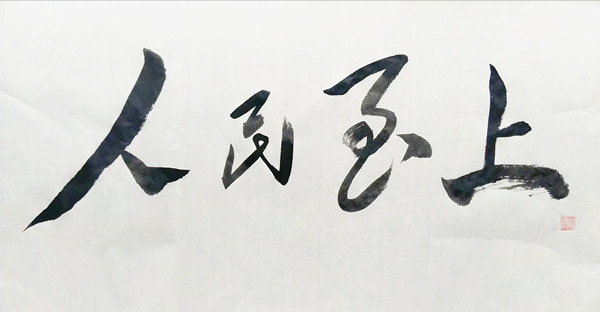 人民至上